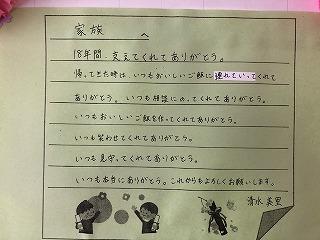 家族 へ
18年間、支えてくれてありがとう。
帰ってきた時は、いつもおいしいご飯に連れていってくれて
ありがとう。いつも相談にのってくれてありがとう。
いつもおいしいご飯を作ってくれてありがとう。
いつも笑わせてくれてありがとう。
いつも見守ってくれてありがとう。
いつも本当にありがとう。これからもよろしくお願いします。
清水 美里